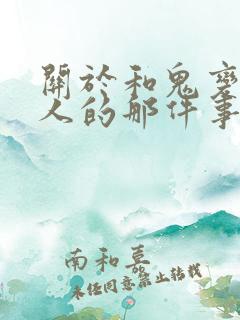 關於和鬼變
人的那件事
南和慕
未經同意禁止轉載